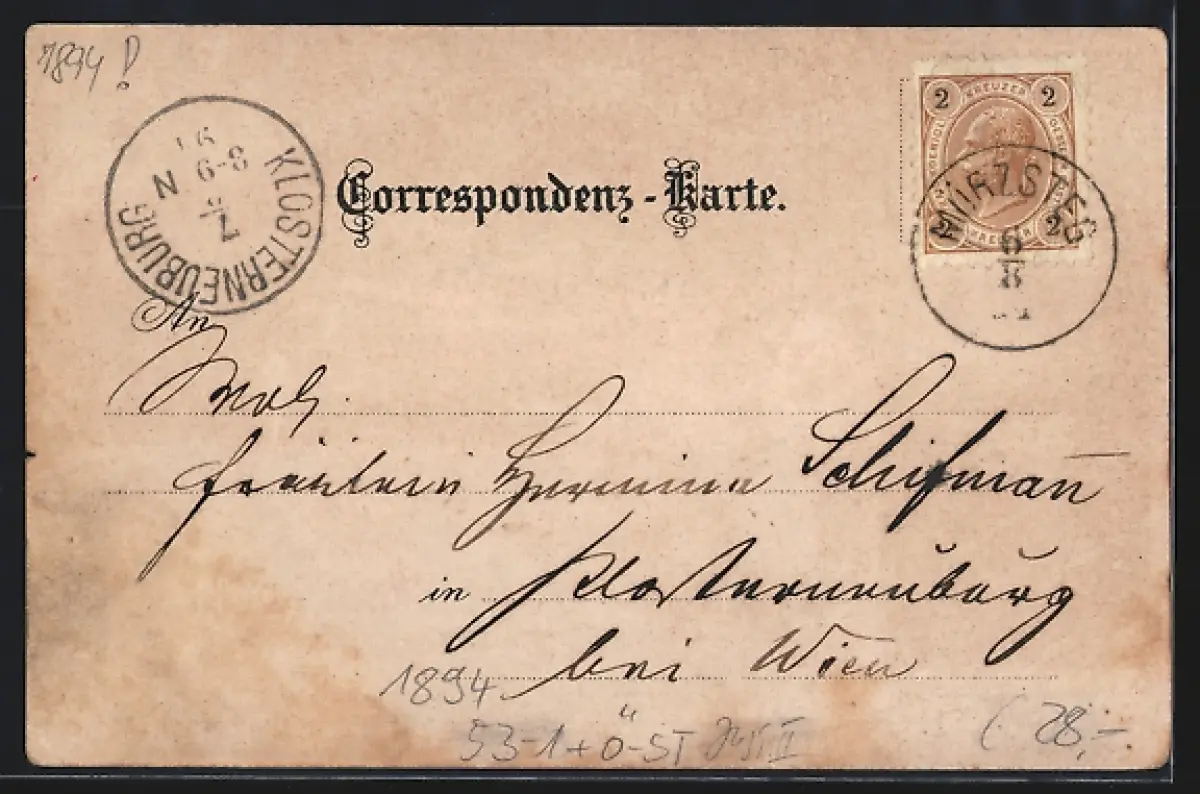 1894!
KLOSTERNEUBURG
6-8 N
7
Correspondenz-Karte.
2 KREUZER 2
2 KREUZER 2
MÜRZSTEG
6/8
An
Wol.
Fräulein Hermine Schifmann
in Klosterneuburg
bei Wien
1894
53-1+Ö-ST
(28,-